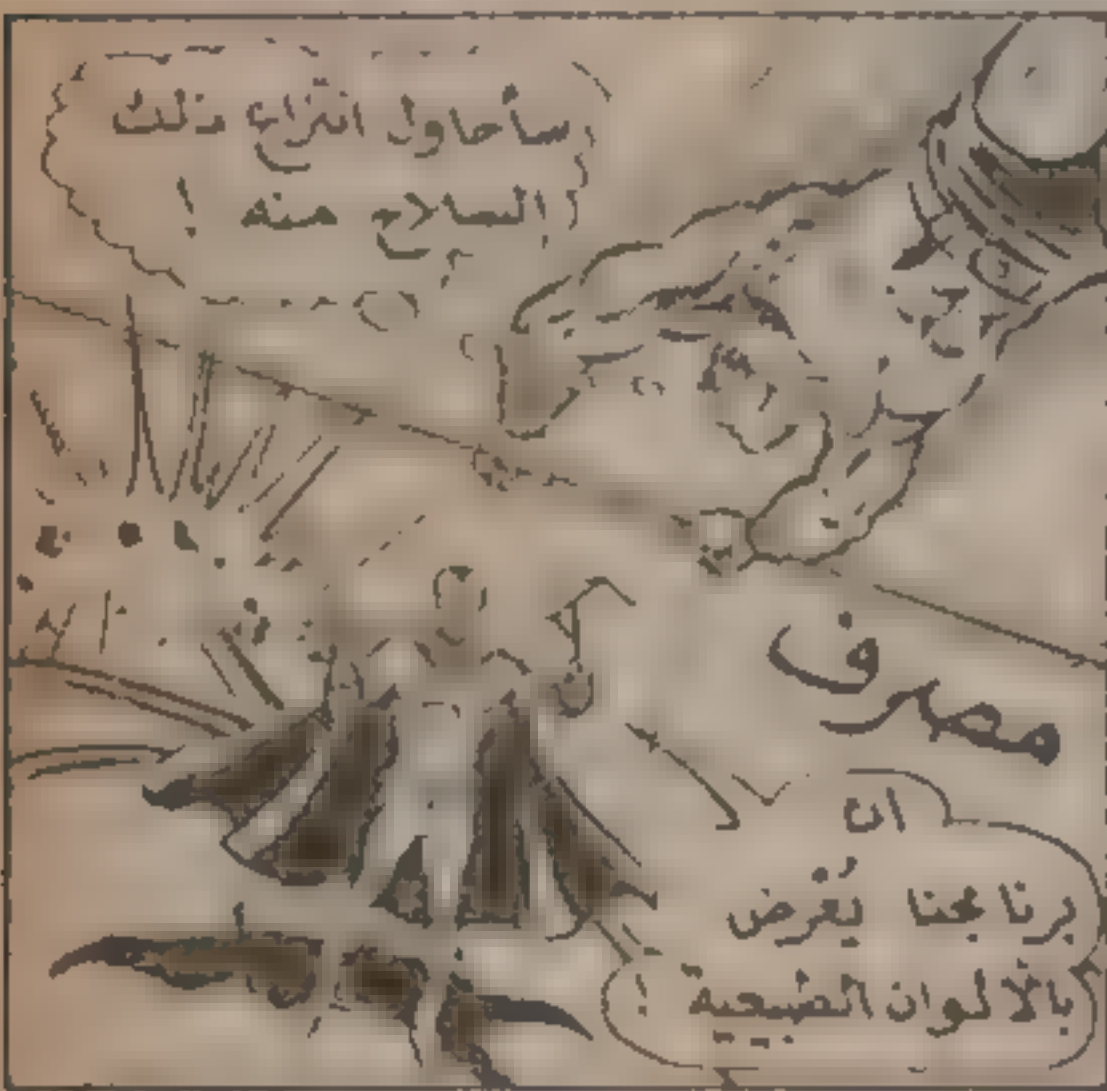 سأحاول انتزاع ذلك
السلاح منه !
مصرف
ان
برنامجنا يُعرض
بالألوان الطبيعية !